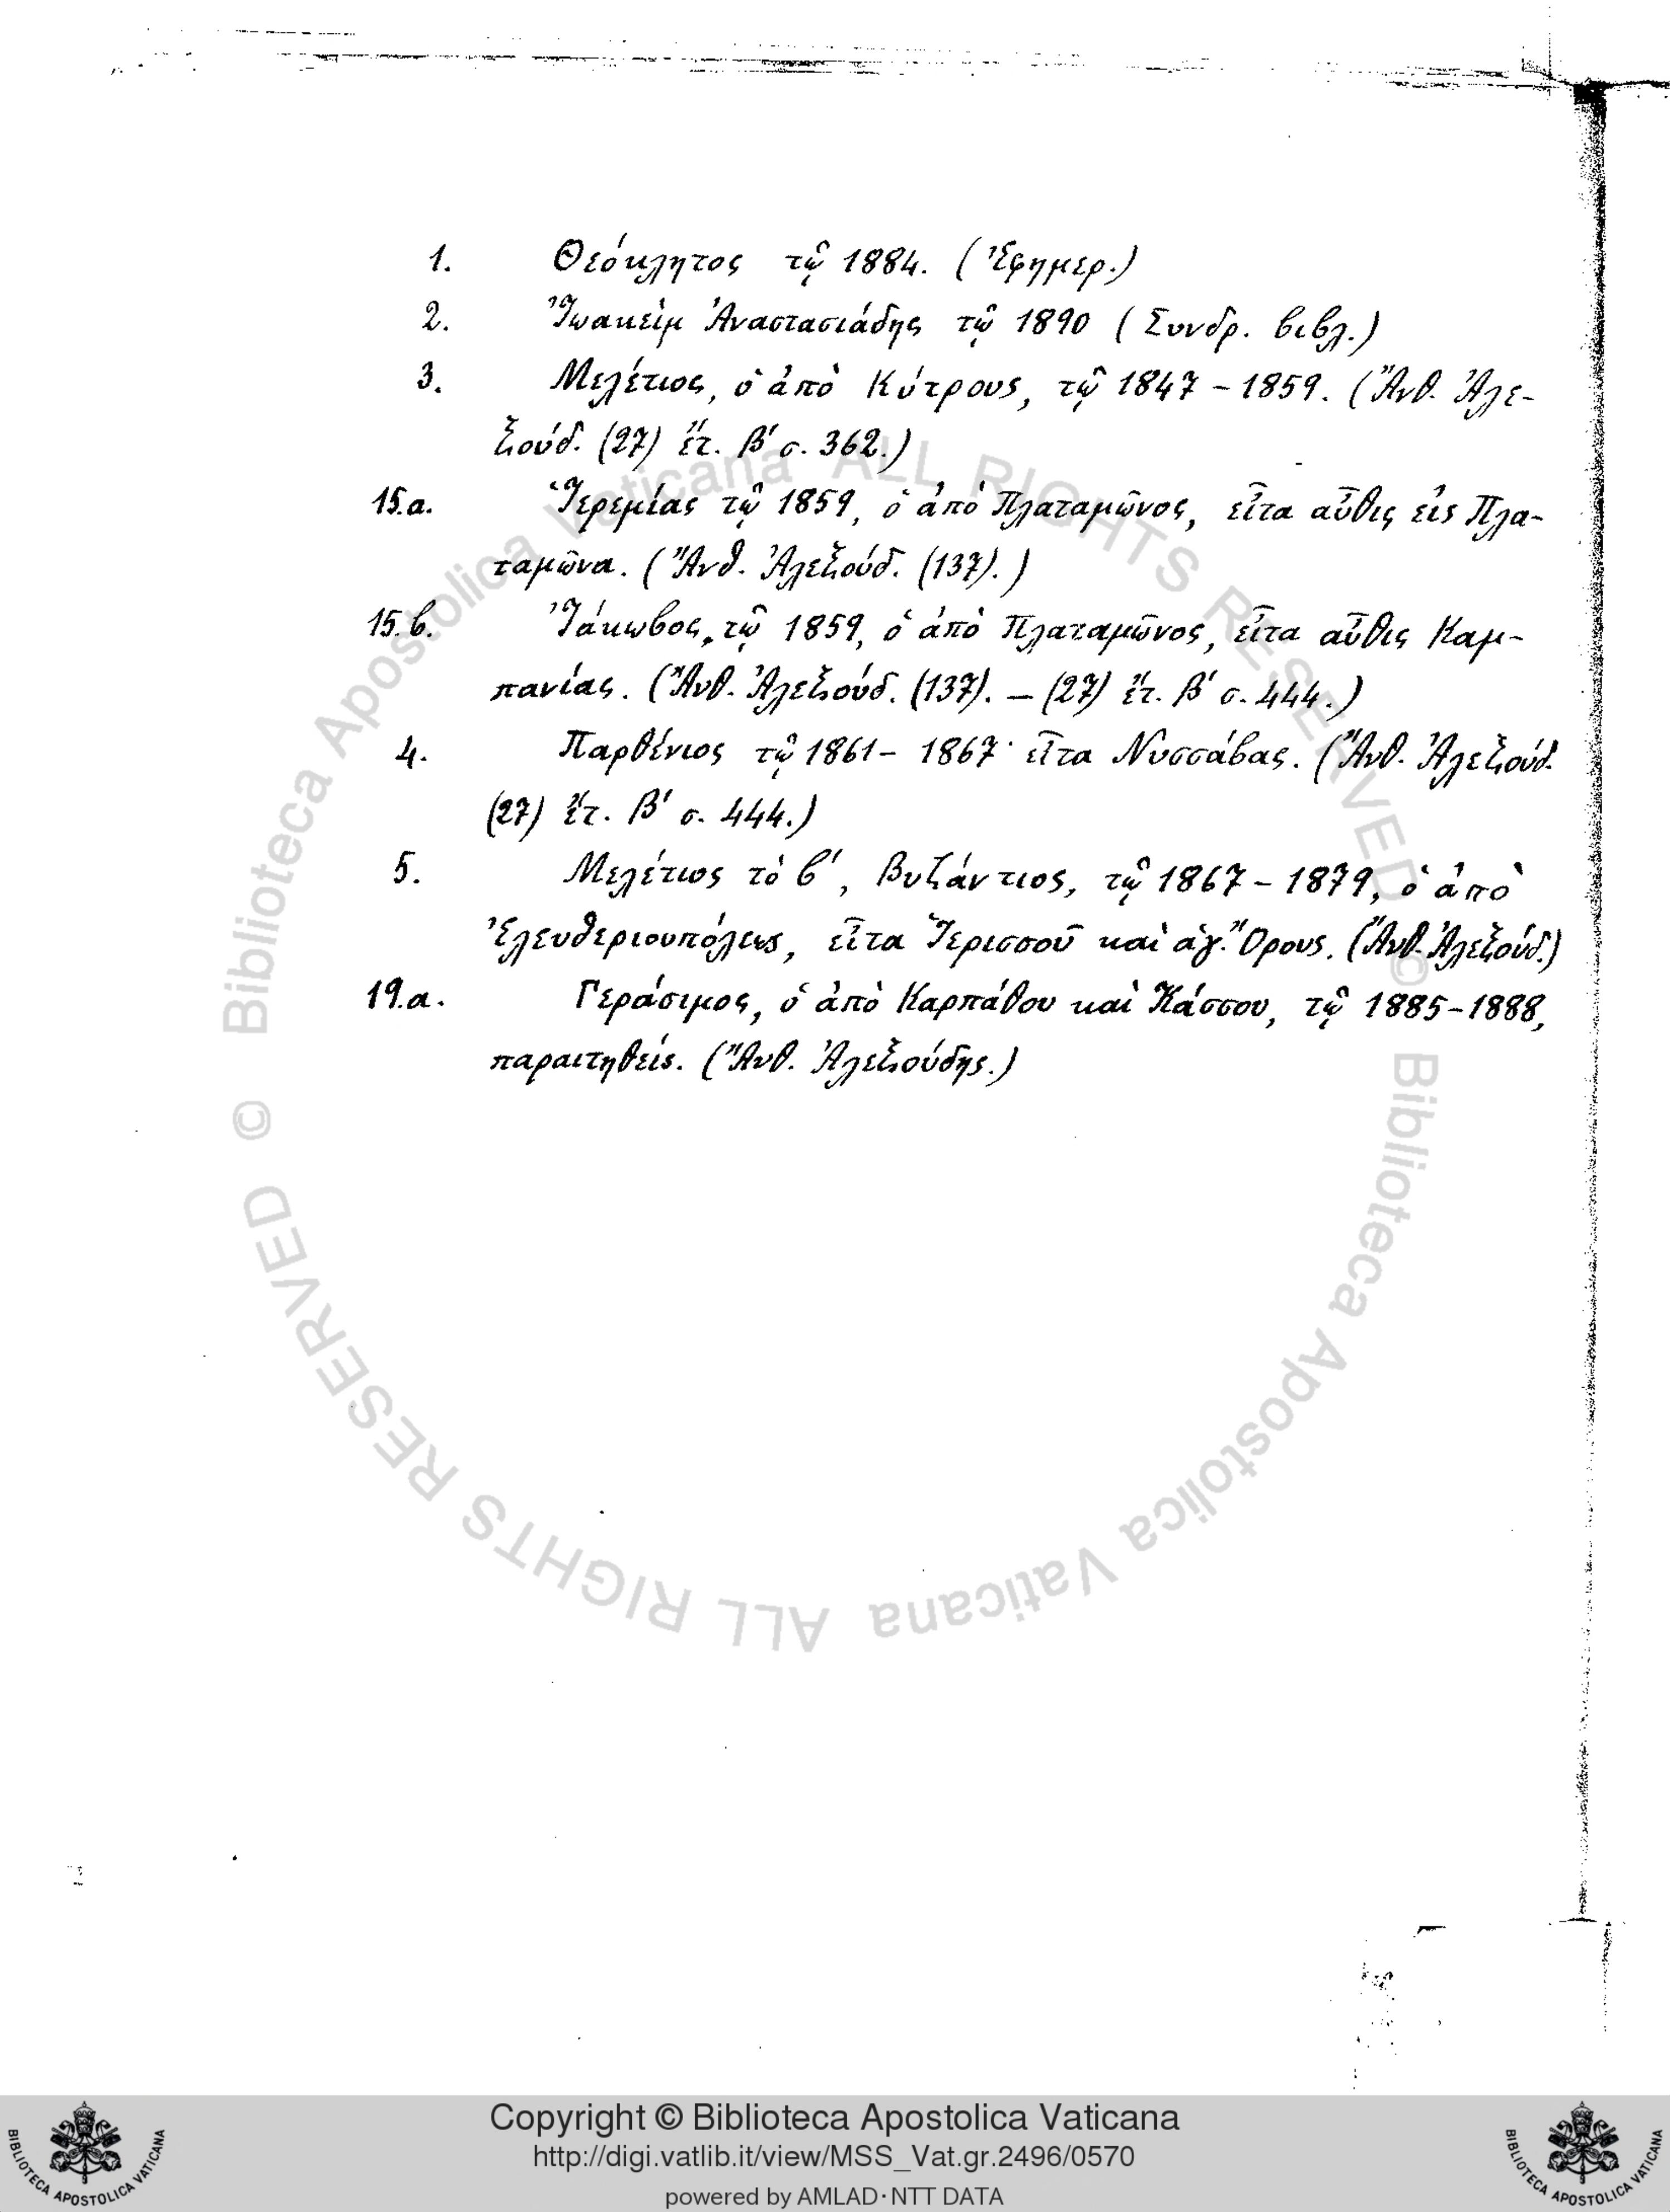 1. Θεόκλητος τῷ 1884. (Ἐφημερ.)
2. Ἰωακεὶμ Ἀναστασιάδης τῷ 1890 (Συνδρ. βιβλ.)
3. Μελέτιος, ὁ ἀπὸ Κύτρους, τῷ 1847 – 1859. (Ἄνθ. Ἀλε-
ξούδ. (27) ἔτ. β' σ. 362.)
15.α. Ἱερεμίας τῷ 1859, ὁ ἀπὸ Πλαταμῶνος, εἶτα αὖθις εἰς Πλα-
ταμῶνα. (Ἄνθ. Ἀλεξούδ. (137).)
15.β. Ἰάκωβος, τῷ 1859, ὁ ἀπὸ Πλαταμῶνος, εἶτα αὖθις Καμ-
πανίας. (Ἄνθ. Ἀλεξούδ. (137). – (27) ἔτ. β' σ. 444.)
4. Παρθένιος τῷ 1861 – 1867· εἶτα Νυσσάβας. (Ἄνθ. Ἀλεξούδ.
(27) ἔτ. β' σ. 444.)
5. Μελέτιος τὸ β', Βυζάντιος, τῷ 1867 – 1879, ὁ ἀπὸ
Ἐλευθεριουπόλεως, εἶτα Ἱερισσοῦ καὶ ἁγ. Ὄρους. (Ἄνθ. Ἀλεξούδ.)
19.α. Γεράσιμος, ὁ ἀπὸ Καρπάθου καὶ Κάσσου, τῷ 1885–1888,
παραιτηθείς. (Ἄνθ. Ἀλεξούδης.)
© Biblioteca Apostolica Vaticana ALL RIGHTS RESERVED
© Biblioteca Apostolica Vaticana ALL RIGHTS RESERVED
BIBLIOTECA APOSTOLICA VATICANA
Copyright © Biblioteca Apostolica Vaticana
http://digi.vatlib.it/view/MSS_Vat.gr.2496/0570
powered by AMLAD·NTT DATA
BIBLIOTECA APOSTOLICA VATICANA